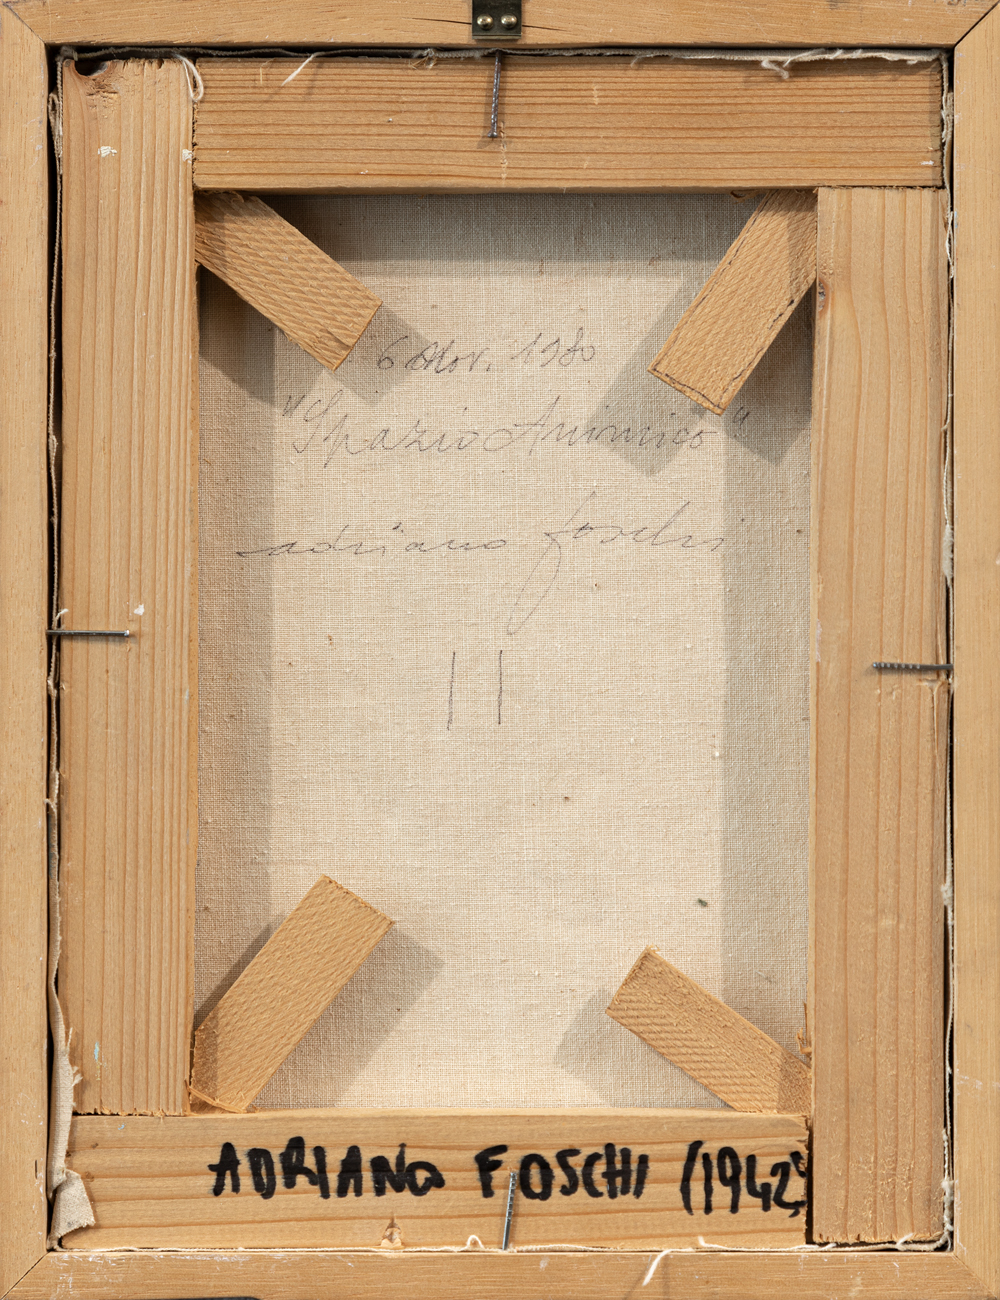 6 Nov. 1980
"Spazio Animico"
adriano foschi
| |
ADRIANO FOSCHI (1942)